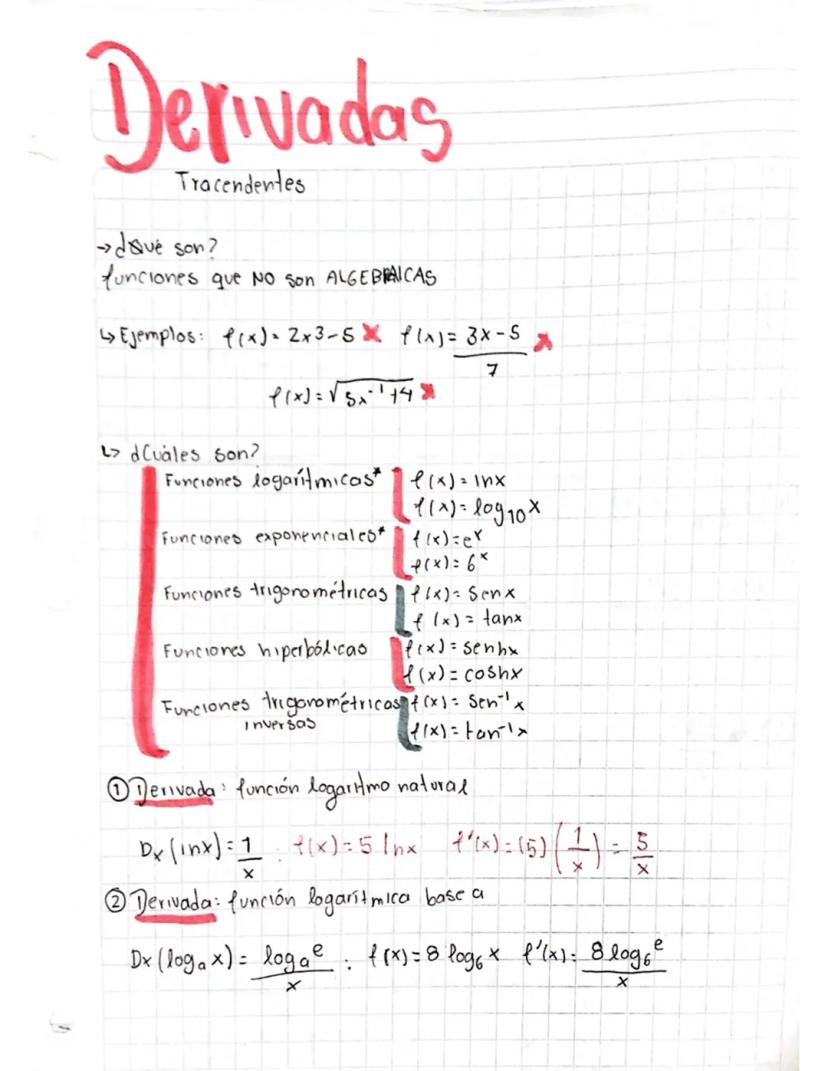 Derivadas
Tracendentes
→ ¿Qué son?
funciones que NO son ALGEBRAICAS
↳ Ejemplos: f(x) = 2x3-5 ✗ f(x) = 3x-5 / 7 ✗
f(x) = √5x⁻¹+4 ✗
↳ ¿Cuáles son?
Funciones logarítmicas* f(x) = lnx
f(x) = log₁₀x
Funciones exponenciales* f(x) = eˣ
f(x) = 6ˣ
Funciones trigonométricas f(x) = senx
f(x) = tanx
Funciones hiperbólicas f(x) = senhx
f(x) = coshx
Funciones trigonométricas f(x) = sen⁻¹x
inversas f(x) = tan⁻¹x
① Derivada: función logaritmo natural
Dx (lnx) = 1/x : f(x) = 5 lnx f'(x) = (5) (1/x) = 5/x
② Derivada: función logarítmica base a
Dx (logₐx) = logₐe / x : f(x) = 8 log₆x f'(x) = 8 log₆e / x